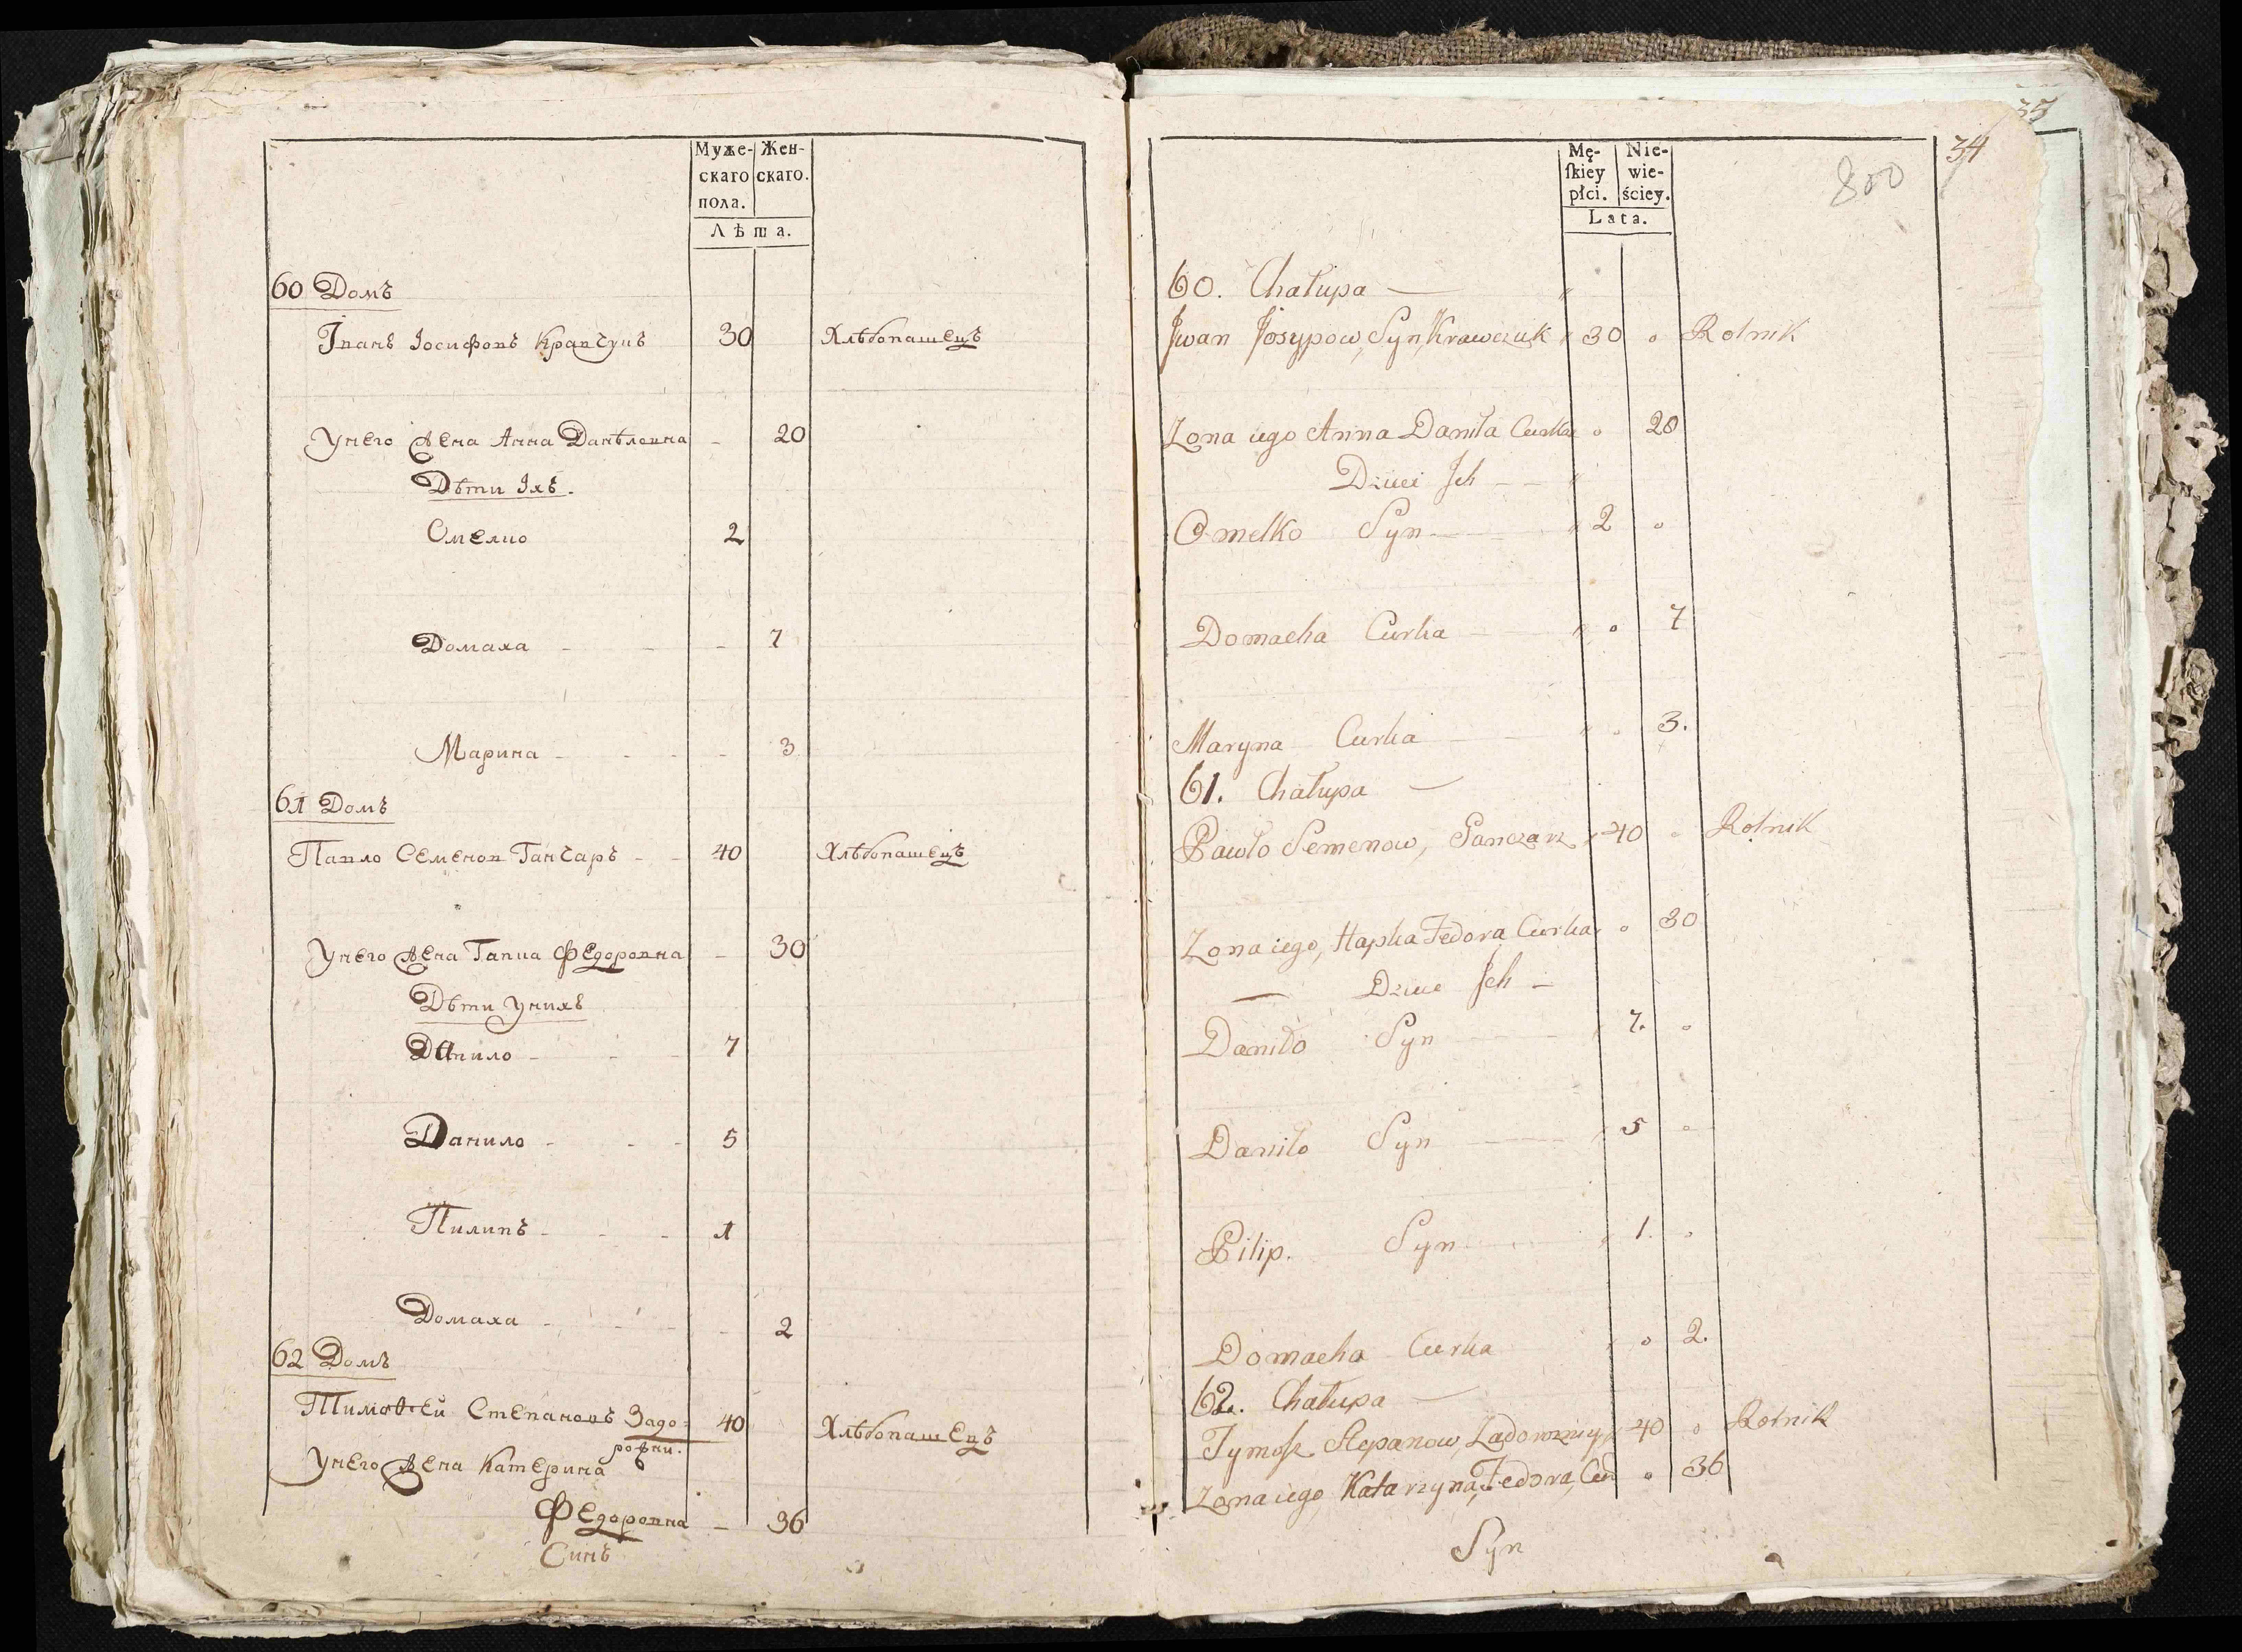 Муже-
скаго
пола.
Жен-
скаго.
Лѣта.
60 Домъ
Іванъ Іосифовъ Кравчукъ 30 Хлѣбопашецъ
Унего жена Анна Данѣловна - 20
Дѣти Іхъ.
Омелко 2
Домаха - - - 7
Марина - - - - 3
61 Домъ
Павло Семенов Ганчаръ - - 40 Хлѣбопашецъ
Унего жена Гапка Федоровна - 30
Дѣти Унихъ
Данило - - - 7
Данило - - - 5
Пилипъ - - - 1
Домаха - - - - 2
62 Домъ
Тимофей Степановъ Задо= 40 Хлѣбопашецъ
рожни.
Унего жена Катерина
Федоровна - 36
Синъ
35
34
800
Mę-
ſkiey
płci.
Nie-
wie-
ściey.
Lata.
60. Chałupa —
Jwan Josypow, Syn, Krawczuk 30 Rolnik
Zona iego Anna Daniła Curka 20
Dzieci Jch - -
Omelko Syn 2
Domacha Curka 7
Maryna Curka 3.
61. Chałupa —
Pawło Semenow, Ganczarz 40 Rolnik
Zona iego, Hapka Fedora Curka 30
— Dziec Jch -
Daniło Syn 7.
Daniło Syn 5
Pilip. Syn 1.
Domacha Curka 2.
62. Chałupa —
Tymosz Stepanow, Zadorozniy 40 Rolnik
Zona iego Katarzyna, Fedora, Cur 36
Syn